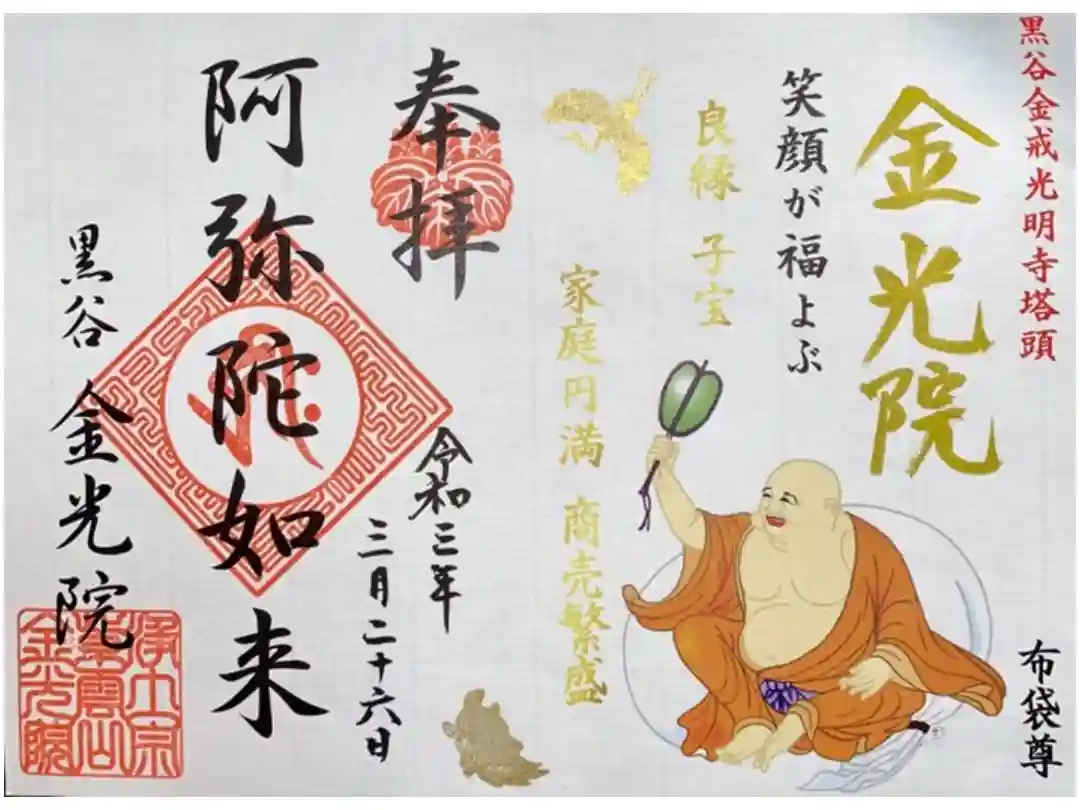 黒谷金戒光明寺塔頭
金光院
笑顔が福よぶ
良縁 子宝
家庭円満 商売繁盛
布袋尊
奉拝
令和三年
三月二十六日
阿弥陀如来
黒谷 金光院
浄土宗
紫雲山
金光院